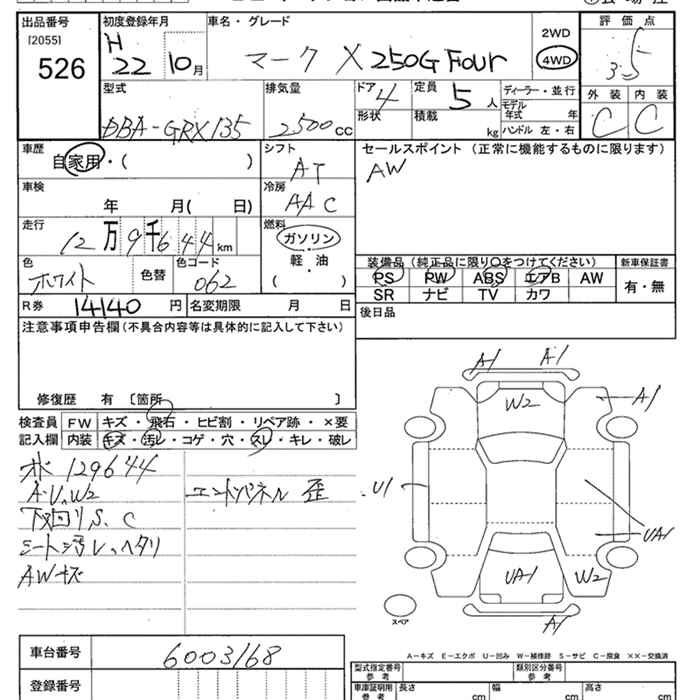 出品番号 [2055] 526
初度登録年月 H 22 10月
車名・グレード マークX 250G Four
2WD 4WD
評価点 3.5
外装 内装 C C
型式 DBA-GRX135
排気量 2500cc
ドア 4 形状
定員 5人
積載 kg
ディーラー・並行
モデル年式 年
ハンドル 左・右
車歴 自家用・( )
シフト AT
セールスポイント(正常に機能するものに限ります)
AW
車検 年 月( 日)
冷房 AAC
走行 12万9千644km
燃料 ガソリン 軽・油 ( )
色 ホワイト 色替 色コード 062
装備品(純正品に限り○をつけてください) 新車保証書
PS PW ABS エアB AW 有・無
SR ナビ TV カワ
R券 14140円 名変期限 月 日
後日品
注意事項申告欄(不具合内容等は具体的に記入して下さい)
修復歴 有 〔箇所 〕
検査員記入欄
FW キズ・飛石・ヒビ割・リペア跡・×要
内装 キズ・汚レ・コゲ・穴・スレ・キレ・破レ
129644
A・U、W2
下回りS、C
シート汚レ、ヘタリ
AWキズ
エンドパネル 歪
A1 A1
W2
A1
U1
UA1
UA1 W2
A1
スペア
A-キズ E-エクボ U-凹み W-補修跡 S-サビ C-腐食 ××-交換済
車台番号 6003168
登録番号
型式指定番号 参考 類別区分番号 参考
車庫証明用 参考 長さ cm 幅 cm 高さ cm